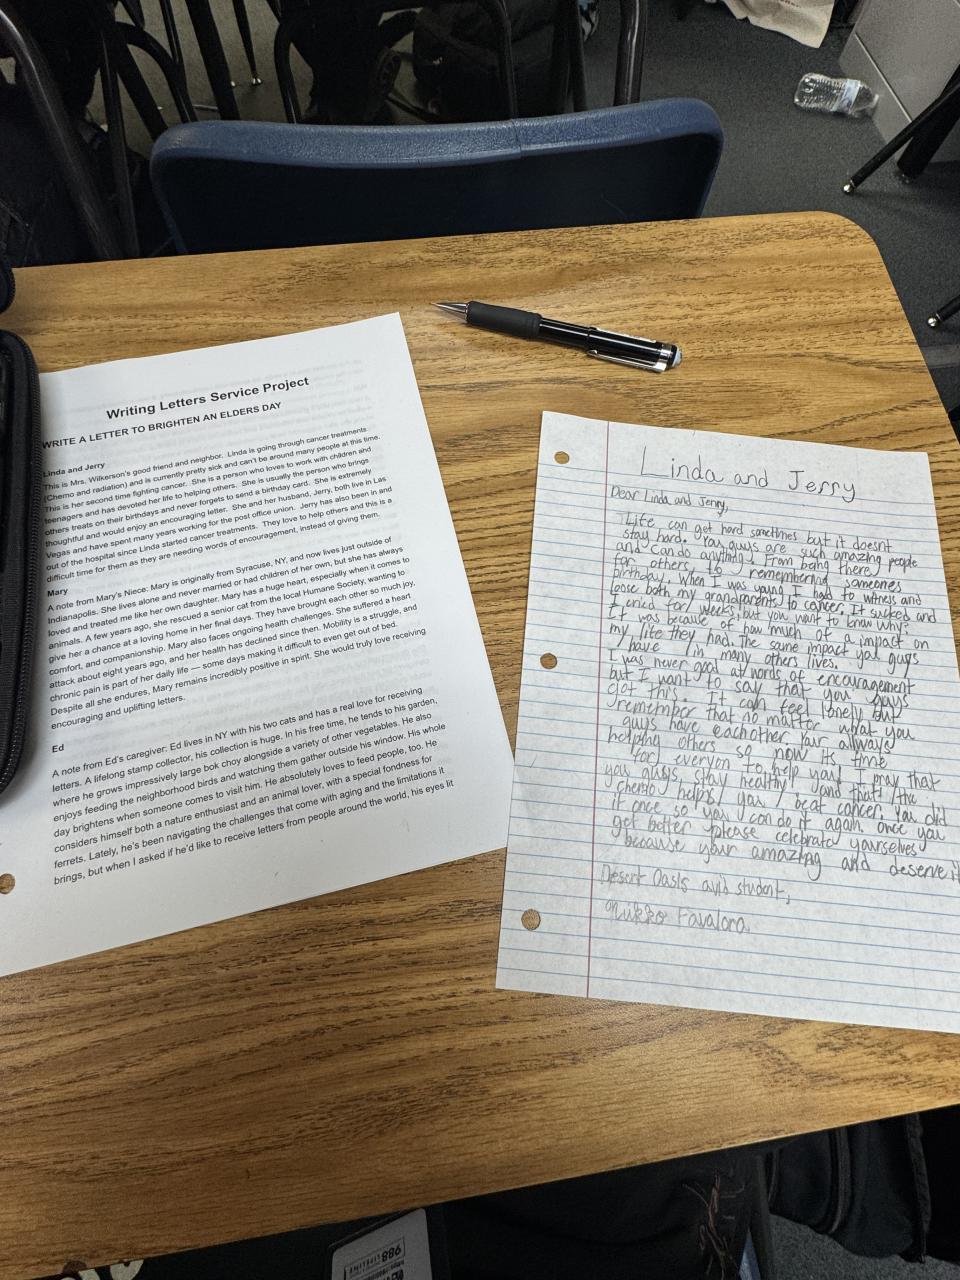 Writing Letters Service Project
WRITE A LETTER TO BRIGHTEN AN ELDERS DAY
Linda and Jerry
This is Mrs. Wilkerson's good friend and neighbor. Linda is going through cancer treatments
(Chemo and radiation) and is currently pretty sick and can't be around many people at this time.
This is her second time fighting cancer. She is a person who loves to work with children and
teenagers and has devoted her life to helping others. She is usually the person who brings
others treats on their birthdays and never forgets to send a birthday card. She is extremely
thoughtful and would enjoy an encouraging letter. She and her husband, Jerry, both live in Las
Vegas and have spent many years working for the post office union. Jerry has also been in and
out of the hospital since Linda started cancer treatments. They love to help others and this is a
difficult time for them as they are needing words of encouragement, instead of giving them.
Mary
A note from Mary's Niece: Mary is originally from Syracuse, NY, and now lives just outside of
Indianapolis. She lives alone and never married or had children of her own, but she has always
loved and treated me like her own daughter. Mary has a huge heart, especially when it comes to
animals. A few years ago, she rescued a senior cat from the local Humane Society, wanting to
give her a chance at a loving home in her final days. They have brought each other so much joy,
comfort, and companionship. Mary also faces ongoing health challenges. She suffered a heart
attack about eight years ago, and her health has declined since then. Mobility is a struggle, and
chronic pain is part of her daily life — some days making it difficult to even get out of bed.
Despite all she endures, Mary remains incredibly positive in spirit. She would truly love receiving
encouraging and uplifting letters.
Ed
A note from Ed's caregiver: Ed lives in NY with his two cats and has a real love for receiving
letters. A lifelong stamp collector, his collection is huge. In his free time, he tends to his garden,
where he grows impressively large bok choy alongside a variety of other vegetables. He also
enjoys feeding the neighborhood birds and watching them gather outside his window. His whole
day brightens when someone comes to visit him. He absolutely loves to feed people, too. He
considers himself both a nature enthusiast and an animal lover, with a special fondness for
ferrets. Lately, he's been navigating the challenges that come with aging and the limitations it
brings, but when I asked if he'd like to receive letters from people around the world, his eyes lit
Linda and Jerry
Dear Linda and Jerry,
Life can get hard sometimes but it doesnt
stay hard. You guys are such amazing people
and can do anything. From being there
for others, to remembering someones
birthday. When I was young I had to witness and
loose both my grandparents to cancer. It sucked and
I cried for weeks, but you want to know why?
It was because of how much of a impact on
my life they had. the same impact you guys
have in many others lives.
I was never good at words of encouragement
but I want to say that you guys
got this. It can feel lonely but
remember that no matter what you
guys have eachother. Your always
helping others so now its time
for everyon to help you. I pray that
you guys stay healthy and that the
chemo helps you beat cancer. You did
it once so you can do it again. once you
get better please celebrate yourselves
because your amazing and deserve it
Desert Oasis avid student,
Favalora
886